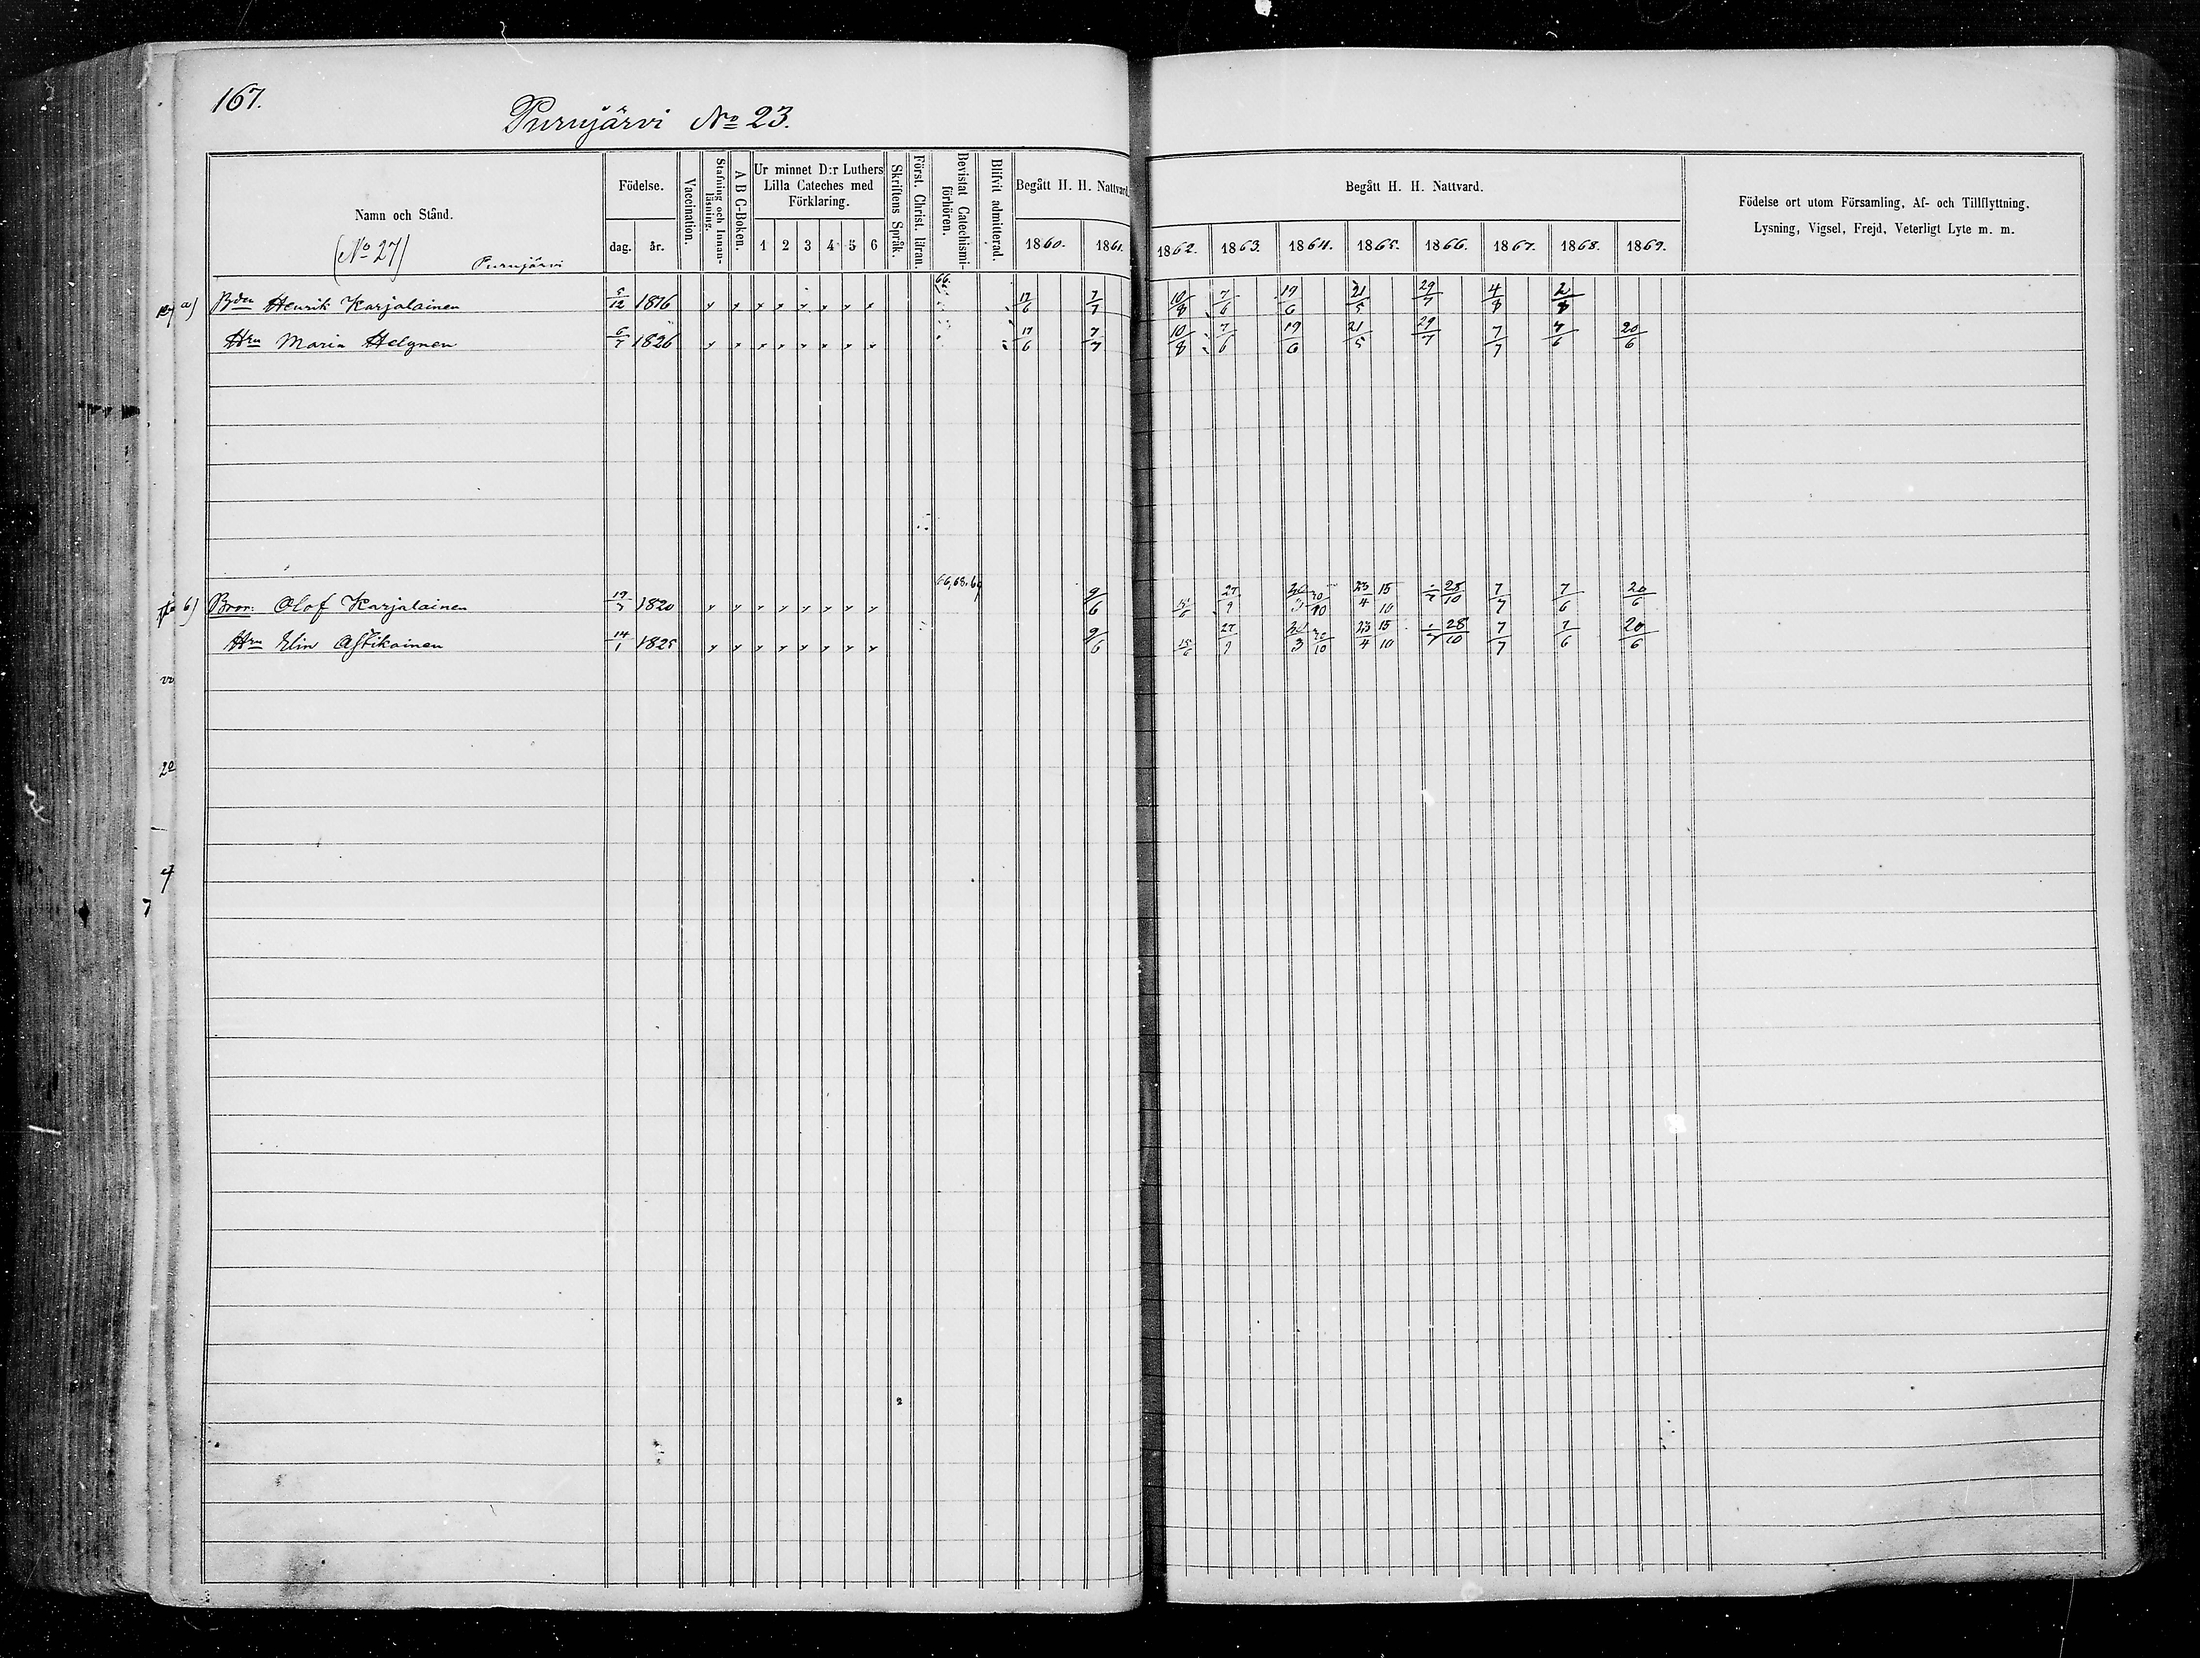 167.
Purujärvi No 23.
Namn och Stånd.
(No 27) Purujärvi
Födelse.
dag. år.
Vaccination.
Stafning och Innanläsning.
A B C-Boken.
Ur minnet D:r Luthers Lilla Cateches med Förklaring.
1 2 3 4 5 6
Skriftens Språk.
Först. Christ. läran.
Bevistat Catechismiförhören.
Blifvit admitterad.
Begått H. H. Nattvard.
1860. 1861.
Begått H. H. Nattvard.
1862. 1863. 1864. 1865. 1866. 1867. 1868. 1869.
Födelse ort utom Församling, Af- och Tillflyttning,
Lysning, Vigsel, Frejd, Veterligt Lyte m. m.
a) Bdn Henrik Karjalainen 5/12 1816 66. 17/6 7/7 10/8 7/6 19/6 21/5 29/7 4/8 2/8
Hru Maria Helynen 6/7 1826 17/6 7/7 10/8 7/6 19/6 21/5 29/7 7/7 7/6 20/6
b) Bror: Olof Karjalainen 19/7 1820 66,68,69 9/6 15/6 27/9 20/3 30/10 23/4 15/10 28/10 7/7 7/6 20/6
Hru Elin Asikainen 14/1 1825 9/6 15/6 27/9 20/3 30/10 23/4 15/10 28/10 7/7 7/6 20/6